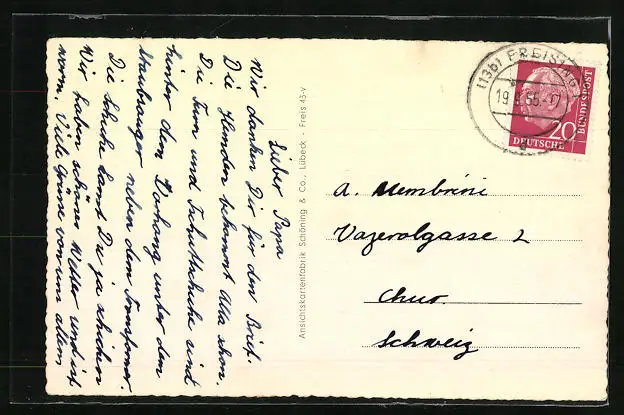 Lieber Papa
Wir danken Dir für den Brief.
Die Hemden bekommt Alla schon.
Die Turn und Fussballschuhe sind
hinter dem Vorhang unter dem
Staubsauger neben dem Transformer.
Die Schuhe kannst Du ja schicken
Wir haben schönes Wetter und ist
warm. Viele Grüsse von uns allen
Ansichtskartenfabrik Schöning & Co., Lübeck - Freis 43-v
A. Membrini
Vazerolgasse 2
Chur.
Schweiz
(13b) FREISING
19
20
DEUTSCHE
BUNDESPOST